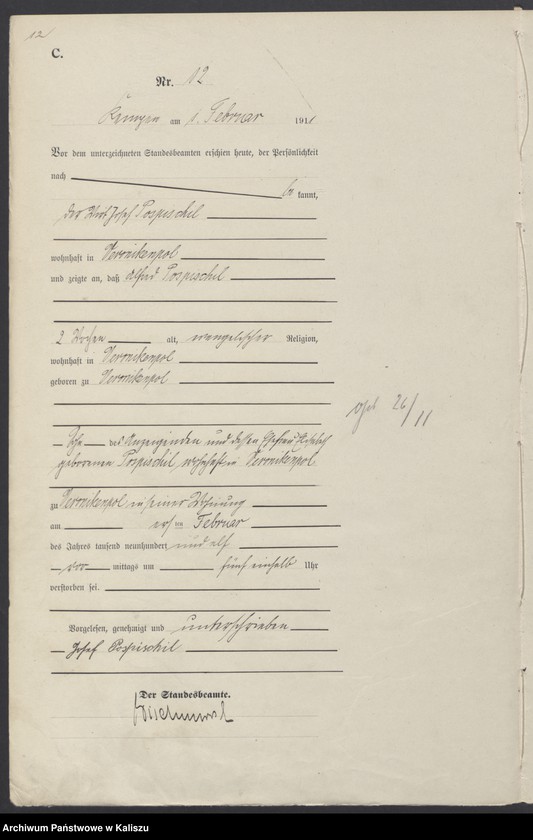 12
C.
Nr. 12
Kempen am 1. Februar 1911
Vor dem unterzeichneten Standesbeamten erschien heute, der Persönlichkeit
nach
be kannt,
der Wirt Josef Pospischil
wohnhaft in Veronikenpol
und zeigte an, daß Alfred Pospischil
2 Wochen alt, evangelischer Religion,
wohnhaft in Veronikenpol
geboren zu Veronikenpol
Sohn des Anzeigenden und dessen Ehefrau Elisabeth
geborenen Pospischil, wohnhaft in Veronikenpol
geb. 26/11
zu Veronikenpol in seiner Wohnung
am ersten Februar
des Jahres tausend neunhundert und elf
vor mittags um fünf einhalb Uhr
verstorben sei.
Vorgelesen, genehmigt und unterschrieben
Josef Pospischil
Der Standesbeamte.
Archiwum Państwowe w Kaliszu